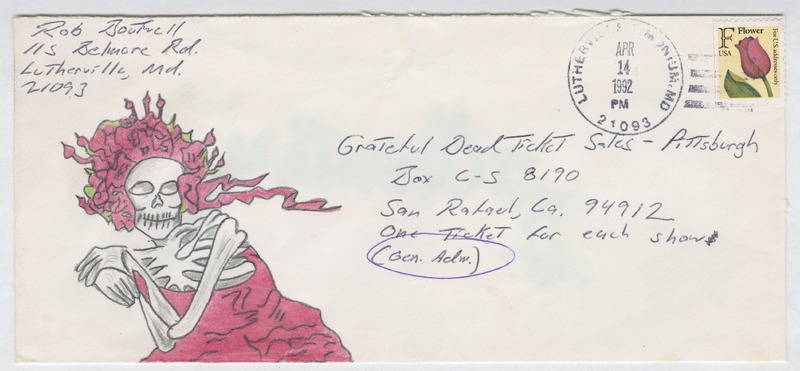 Rob Boutwell
115 Belmore Rd.
Lutherville, Md.
21093
LUTHERVILLE TIMONIUM, MD
APR
14
1992
PM
21093
F Flower
USA
For U.S. addresses only
Grateful Dead Ticket Sales - Pittsburgh
Box C-S 8190
San Rafael, Ca. 94912
One Ticket for each show
(Gen. Adm.)